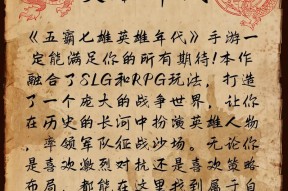 《五霸七雄英雄年代》手游一
定能满足你的所有期待!本作
融合了SLG和RPG玩法,打造
了一个庞大的战争世界,让你
在历史的长河中扮演英雄人物
,率领军队征战沙场。无论你
是喜欢激烈对抗还是喜欢策略
布局,都能在这里找到属于自